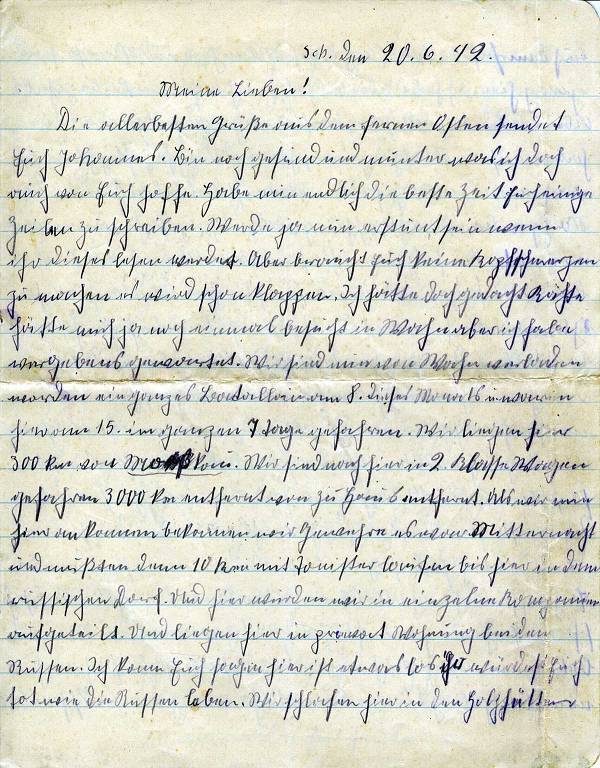 Sch. den 20.6.42.
Meine Lieben!
Die allerbesten Grüße aus dem fernen Osten sendet
Euch Johannes. Bin noch gesund und munter was ich doch
auch von Euch hoffe. Habe nun endlich die beste Zeit Euch einige
Zeilen zu schreiben. Werde ja nun erstunt sein wenn
ihr dieses lesen werdet. Aber braucht Euch keine Kopfschmerzen
zu machen es wird schon klappen. Ich hätte doch gedacht Käthe
hätte mich ja noch einmal besucht in Wahn aber ich habe
vergebens gewartet. Wir sind nun von Wahn verladen
worden ein ganzes Batallion am 8. dieses Monats u waren
hier am 15. im ganzen 7 Tage gefahren. Wir liegen hier
300 km von Moßkau. Wir sind nach hier in 2. Klasse Wagen
gefahren 3000 km entfernt von zu Haus entfernt. Als wir nun
hier ankamen bekamen wir Gewehre es war Mitternacht
und mußten dann 10 km mit Tornister laufen bis hier in dem
russischen Dorf. Und hier wurden wir in einzelne Kompanien
aufgeteilt. Und liegen hier in privat Wohnung bei den
Russen. Ich kann Euch sagen hier ist etwas los ihr würdet Euch
tot wie die Russen leben. Wir schlafen hier in den Holzhütten